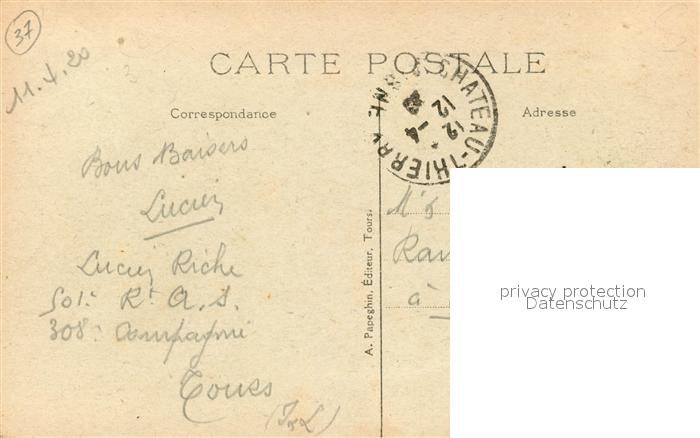 37
11.4.20
CARTE POSTALE
Correspondance
Adresse
CHATEAU-THIERRY AISNE
12
12 -4
20
Bons Baisers
Lucien
Lucien Riche
501e Rt A. S.
308e Compagnie
Tours
(I & L)
A. Papeghin, Éditeur, Tours.
à
privacy protection
Datenschutz